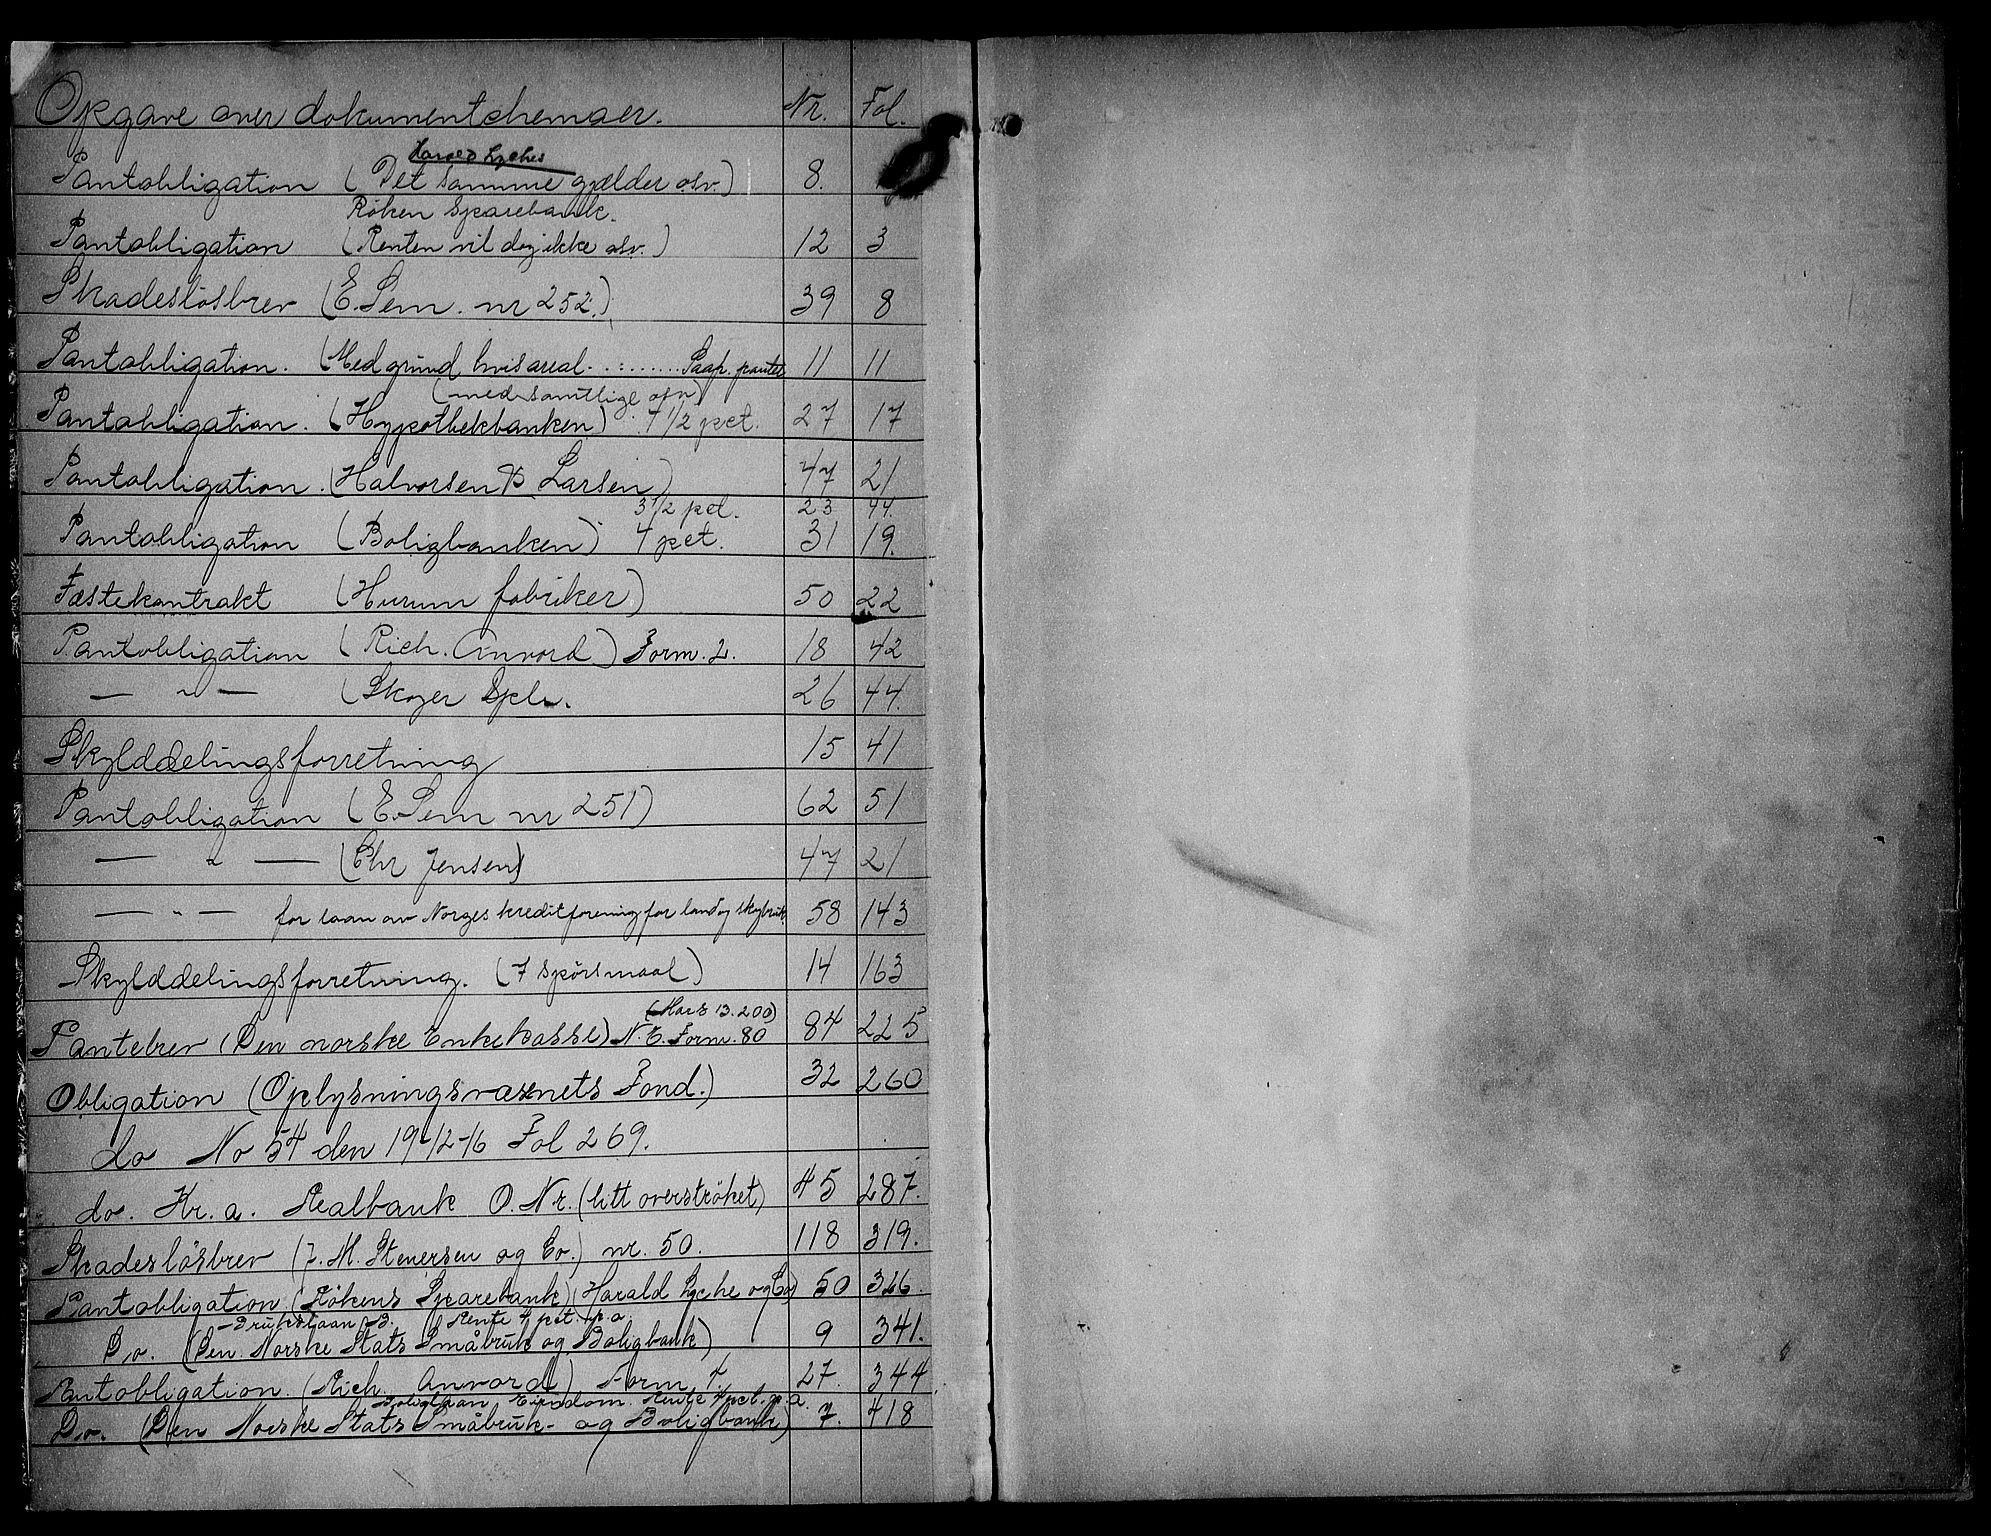 Opgave over dokumentchemaer. Nr. Fol.
Harald Lyches
Pantobligation (Det samme gjælder osv.) 8.
Røken Sparebank.
Pantobligation (Renten vil dog ikke osv.) 12 3
Skadesløsbrev (E. Sem. nr 252.) 39 8
Pantobligation. (Med grund hvis areal . . . . . . . . Paap. pantet 11 11
(med samtlige osv)
Pantobligation. (Hypothekbanken) 4 1/2 pct. 27 17
Pantobligation. (Halvorsen & Larsen) 47 21
3 1/2 pct. 23 44.
Pantobligation (Boligbanken) 4 pct. 31 19.
Fæstekontrakt (Hurum fabriker) 50 22
Pantobligation (Rich. Anvord) Form. 2. 18 42
— " — (Skoger Spb. 26 44.
Skylddelingsforretning 15 41
Pantobligation (E. Sem nr 251) 62 51
— " — (Chr Jensen) 47 21
— " — for laan av Norges kreditforening for land og skogbruk. 58 143
Skylddelingsforretning. (7 spørsmaal) 14 163
(Mars 13. 200)
Pantebrev (Den norske Enkekasse) N. E. Form. 80 84 225
Obligation (Oplysningsvæsnets Fond.) 32 260
do No 54 den 19-12-16 Fol 269.
do. Kr. a. Realbank O. Nr. (litt overstrøket) 45 287.
Skadesløsbrev (J. M. Stenersen og Co.) nr. 50. 118 319.
Pantobligation (Røkens Sparebank) (Harald Lyche og Co) 50 326.
Brukslaan B. Rente 4 pct. p. a.
Do. (Den Norske Stats Småbruk og Boligbank) 9 341.
Pantobligation. (Rich. Anvord) Form 4. 27 344
Boliglaan Eiendom. Rente 4 pct. p. a.
Do. (Den Norske Stats Småbruk- og Boligbank) 7. 418